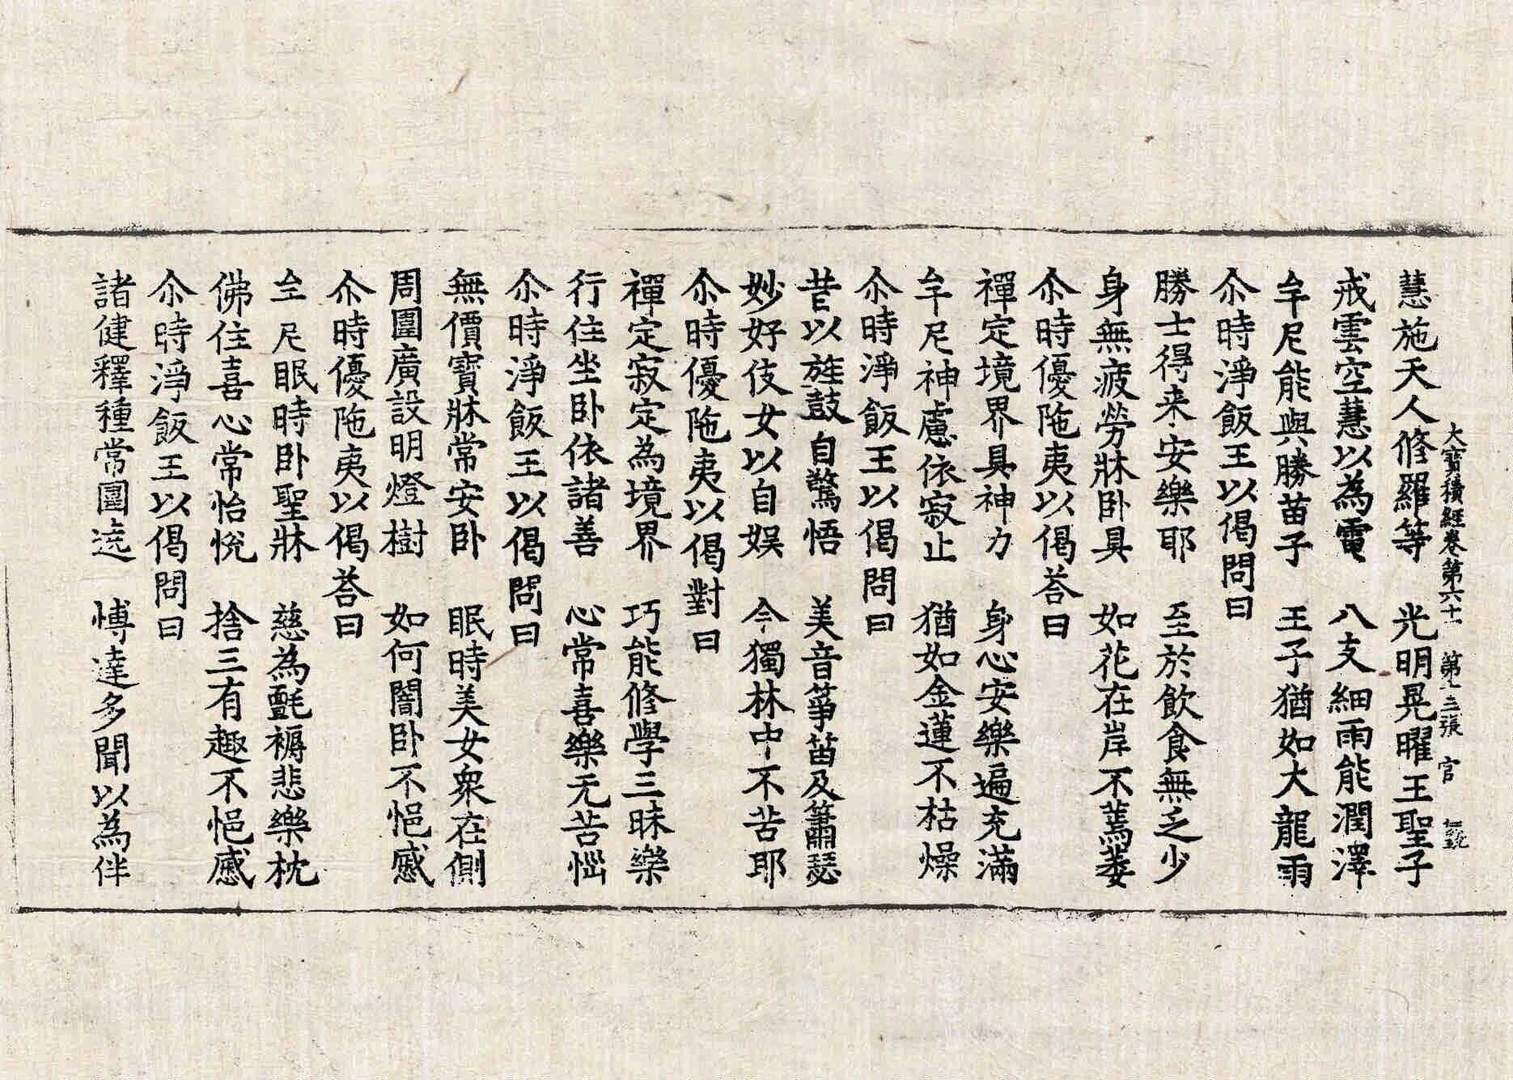 大寶積經卷第六十一　第十三張　官
慧施天人修羅等　光明晃曜王聖子
戒雲空慧以為電　八支細雨能潤澤
牟尼能與勝苗子　王子猶如大龍雨
尒時淨飯王以偈問曰
勝士得来安樂耶　至於飲食無乏少
身無疲勞牀卧具　如花在岸不蔫萎
尒時優陁夷以偈荅曰
禪定境界具神力　身心安樂遍充滿
牟尼神慮依寂止　猶如金蓮不枯燥
尒時淨飯王以偈問曰
昔以旌鼓自驚悟　美音箏笛及簫瑟
妙好伎女以自娱　今獨林中不苦耶
尒時優陁夷以偈對曰
禪定寂定為境界　巧能修學三昧樂
行住坐卧依諸善　心常喜樂无苦惱
尒時淨飯王以偈問曰
無價寶牀常安卧　眠時美女衆在側
周圍廣設明燈樹　如何闇卧不悒慼
尒時優陁夷以偈荅曰
牟尼眠時卧聖牀　慈為氈褥悲樂枕
佛住喜心常怡悅　捨三有趣不悒慼
尒時淨飯王以偈問曰
諸健釋種常圍遶　慱達多聞以為伴